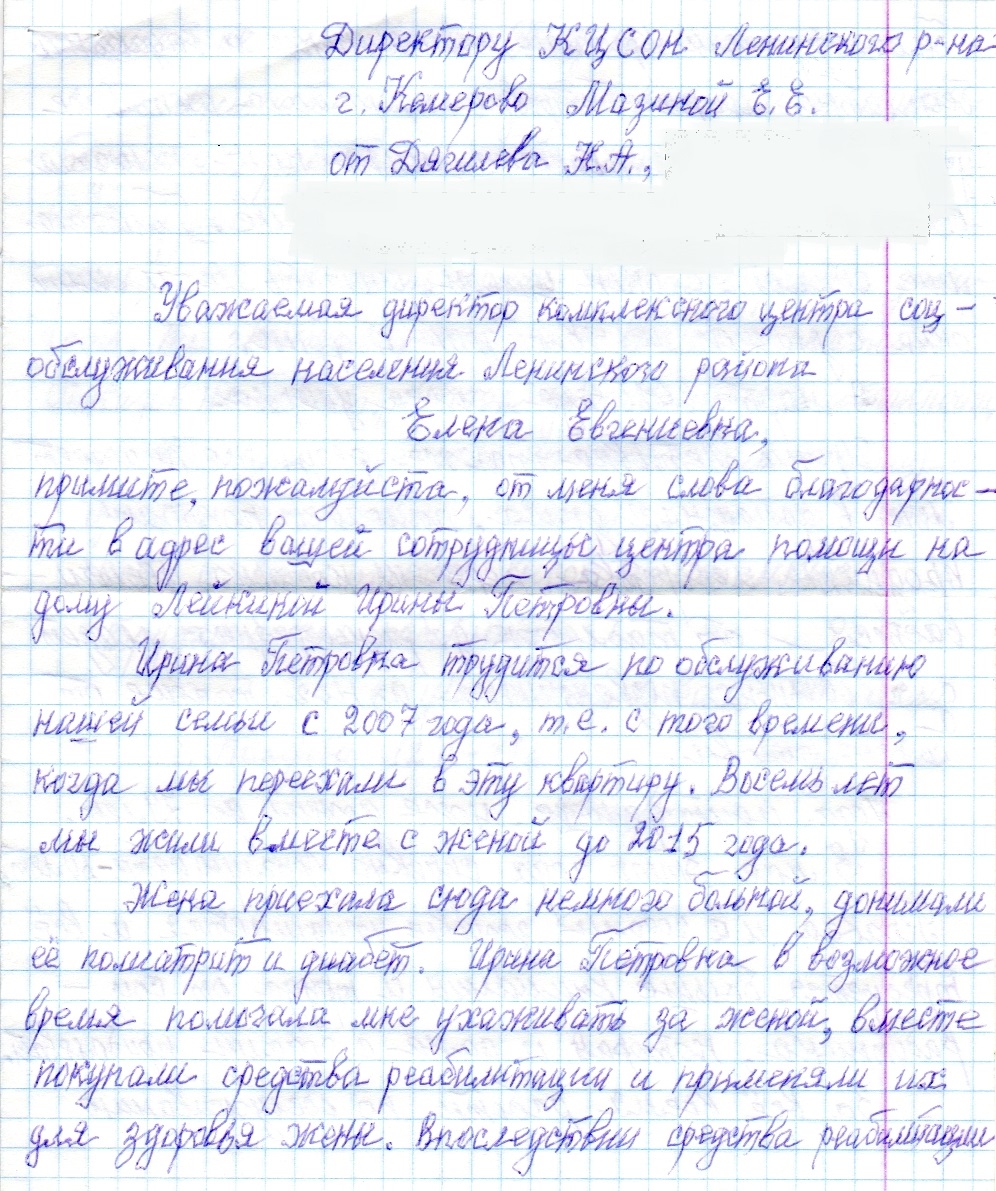 Директору КЦСОН Ленинского р-на
г. Кемерово Мазиной Е.Е.
от Дягилева Н.А.,
Уважаемая директор комплексного центра соц-
обслуживания населения Ленинского района
Елена Евгениевна,
примите, пожалуйста, от меня слова благодарнос-
ти в адрес вашей сотрудницы центра помощи на
дому Лейкиной Ирины Петровны.
Ирина Петровна трудится по обслуживанию
нашей семьи с 2007 года, т.е. с того времени,
когда мы переехали в эту квартиру. Восемь лет
мы жили вместе с женой до 2015 года.
Жена приехала сюда немного больной, донимали
её полиатрит и диабет. Ирина Петровна в возможное
время помогала мне ухаживать за женой, вместе
покупали средства реабилитации и применяли их
для здоровья жены. Впоследствии средства реабилитации